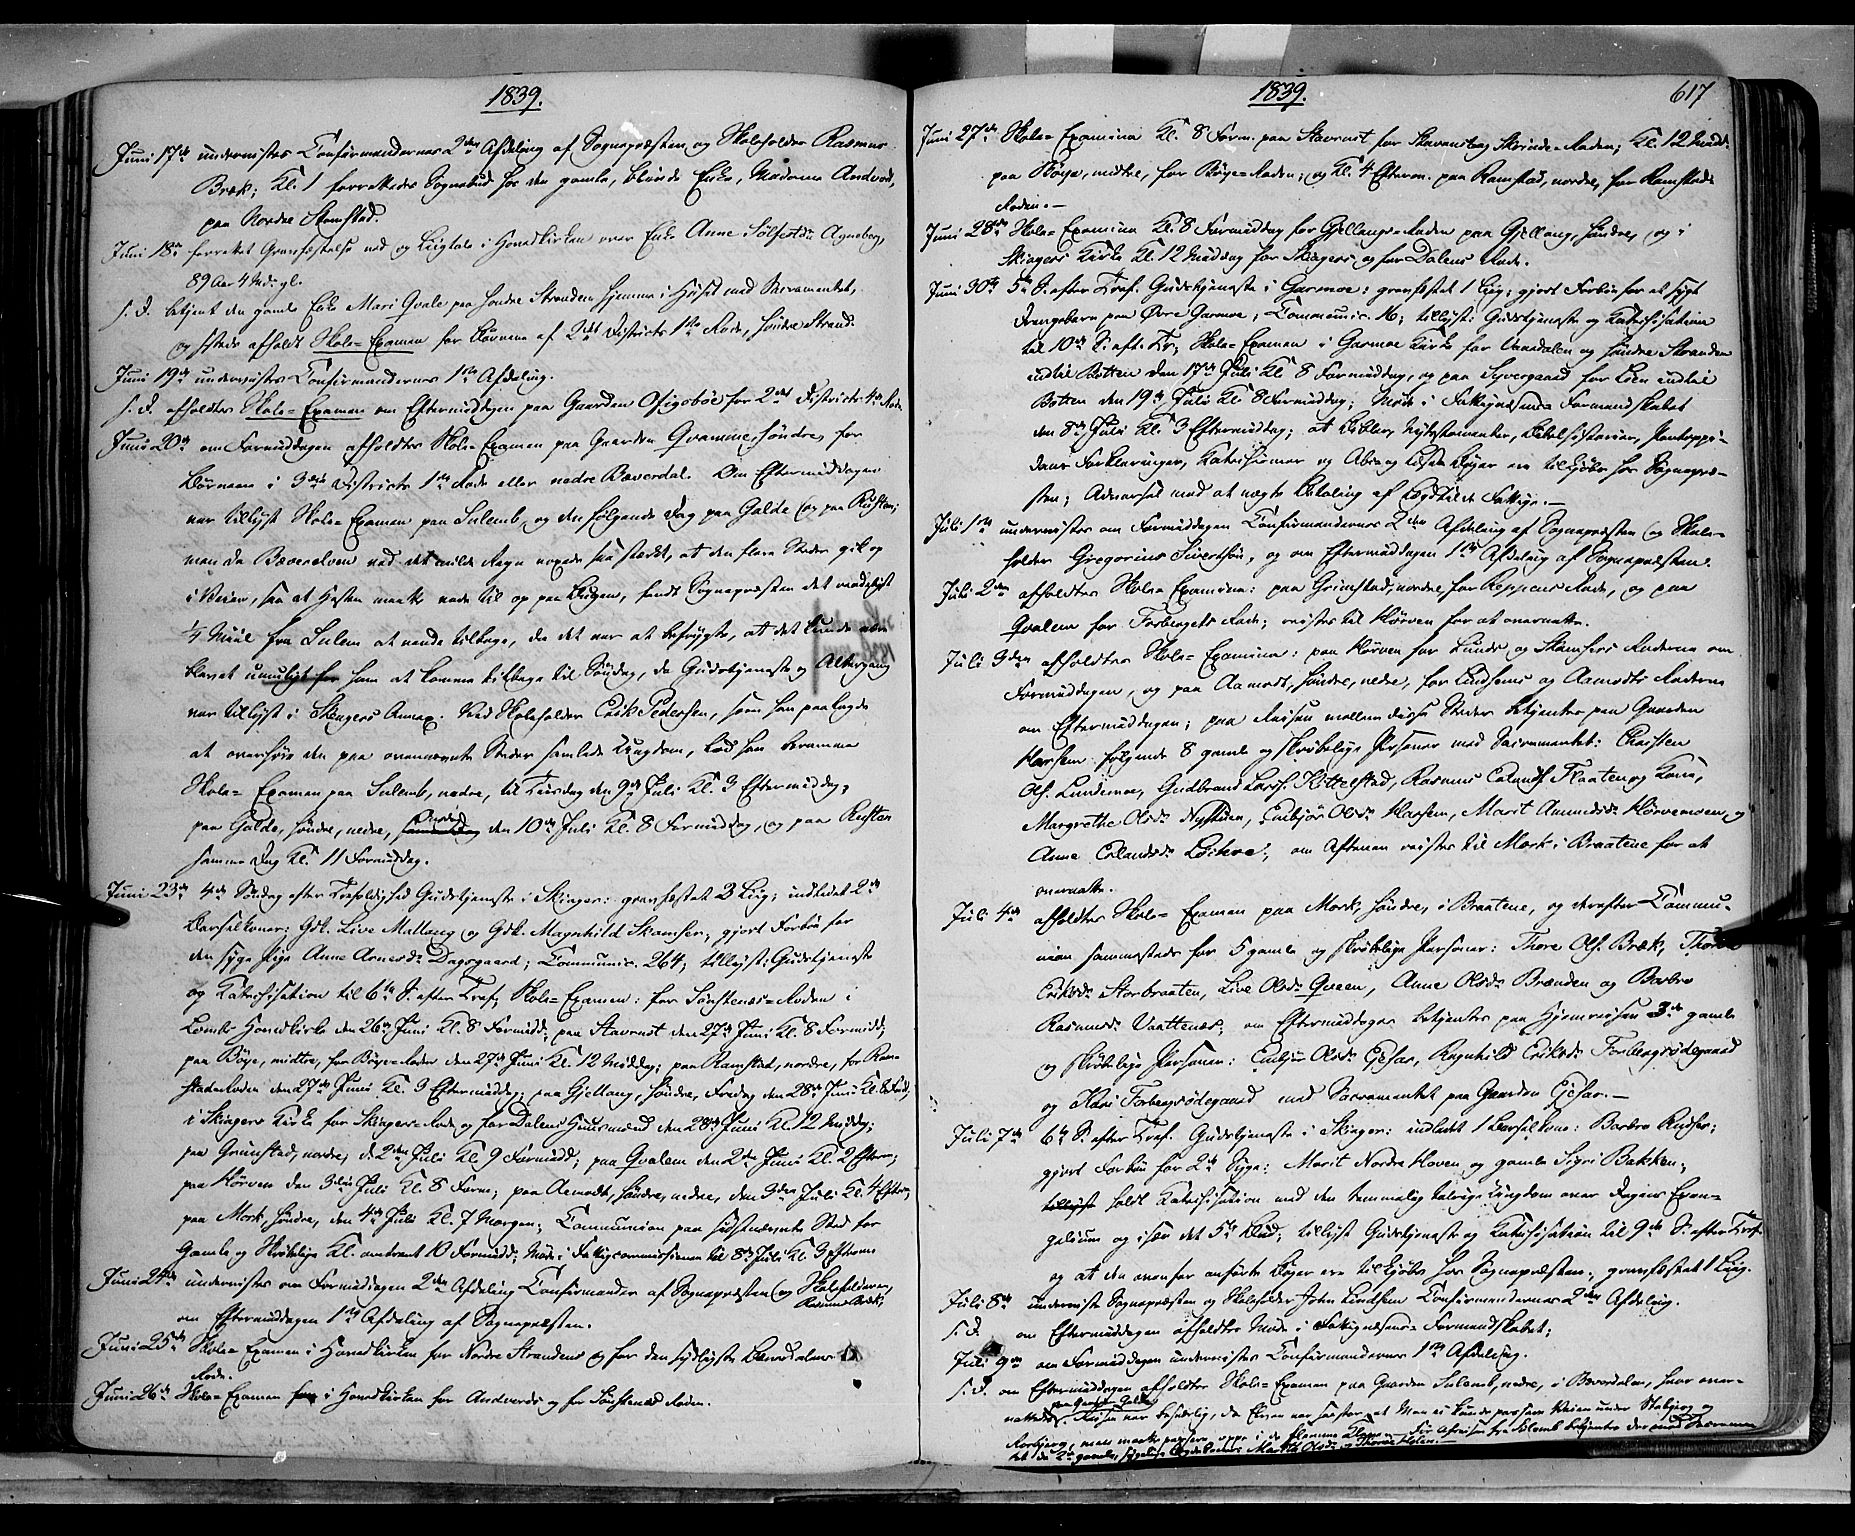 1839.
Juni 17de undervistes Confirmandernes 2den Afdeling af Sognepræsten og Skoleholder Rasmus
Bræk; Kl. 1 forrettedes Sognebud hos den gamle, blinde Enke, Madame Andvord,
paa Nordre Ramstad.
Juni 18de forrettet Gravfæstelse ved og Liigtale i Hovedkirken over Enke Anne Sølfestdr Agneberg,
89 Aar 4 Mdr. gl.
s. D. betjent den gamle Enke Mari Qvale paa søndre Stranden hjemme i Huset med Sacramentet,
og sstds afholdt Skole-Examen for Børnene af 2det Districts 1ste Rode, søndre Strand.
Juni 19de undervistes Confirmandernes 1ste Afdeling.
s. D. afholdtes Skole-Examen om Eftermiddagen paa Gaarden for 2det Districts 4de Rode.
Juni 20de om Formiddagen afholdtes Skole-Examen paa Gaarden Qvamme, søndre, for
Børnene i 3die Districts 1ste Rode eller nedre Bæverdal. Om Eftermiddagen
var tillyst Skole-Examen paa Sulem, og den følgende Dag paa Galde og paa Rusten;
men da Bæverelven ved det milde Regn voxede saa stærkt, at den flere Steder gik op
i Veien, saa at Hesten maatte vade til op paa Bugen, fandt Sognepræsten det raadeligst
1/4 Miil fra Sulem at vende tilbage, da det var at befrygte, at det kunde være
blevet umuligt for ham at komme tilbage til Søndag, da Gudstjeneste og Altergang
var tillyst i Skeagers Annex. Ved Skoleholder Erik Pedersen, som han paalagde
at overhøre den paa ovennævnte Steder samlede Ungdom, lod han beramme
Skole-Examen paa Sulem, nedre, til Tirsdag den 9de Juli Kl. 3 Eftermiddag,
paa Galde, søndre, nedre, Onsdag den 10de Juli Kl. 8 Formiddag, og paa Rusten
samme Dag Kl. 11 Formiddag.
Juni 23de 4de Søndag efter Trefoldighed Gudstjeneste i Skiager: gravfæstet 3 Liig; indledet 2de
Barselkoner: Gdk. Live Mallang og Gdk. Magnhild Skamser; gjort Forbøn for
den syge Pige Anne Arnesdr Dagsgaard; Communic. 264; tillyst: Gudstjeneste
og Katechisation til 6te S. efter Tref, Skole-Examen: for Sønstenæs-Roden i
Loms Hovedkirke den 26de Juni Kl. 8 Formidd; paa Stavrust den 27de Juni Kl. 8 Formidd;
paa Bøye, midtre, for Bøye-Roden den 27de Juni Kl. 12 Middag; paa Ramstad, nordre, for Ram-
stads-Roden den 27de Juni Kl. 3 Eftermiddag; paa Gjellang, søndre, Fredag den 28de Juni Kl. 8 Form,
i Skiagers Kirke for Skiagers-Rode og for Dalens Huusmænd den 28de Juni Kl. 12 Middag;
paa Grimstad, nordre, d. 2den Juli Kl. 9 Formidd; paa Qvalem den 2den Juli Kl. 2 Efterm;
paa Hørven den 3die Juli Kl. 8 Form; paa Aamodt, søndre, nedre, den 3die Juli Kl. 4 Efterm,
paa Mork, søndre, den 4de Juli Kl. 7 Morgen; Communion paa sidstnævnte Sted for
Gamle og Skrøbelige Kl. omtrent 10 Formidd: Møde i Fattigcommissionen til 8de Juli Kl. 3 Efterm
Juni 24de undervistes om Formiddagen 2den Afdeling Confirmander af Sognepræsten og Skoleholder
Rasmus Bræk,
om Eftermiddagen 1ste Afdeling af Sognepræsten.
Juni 25de Skole-Examen i Hovedkirken for Nordre Strandens og for den sydligste Bæverdalens
Rode.
Juni 26de Skole-Examen i Hovedkirken for Andvords og for Sønstenæs Roden.
1839.
617
Juni 27de Skole-Examina Kl. 8 Form. paa Stavrust for Skrinde-Roden; Kl. 12 Midd.
paa Bøye, midtre, for Bøye-Roden; og Kl. 4 Efterm. paa Ramstad, nordre, for Ramstads
Roden.—
Juni 28de Skole-Examina Kl. 8 Formiddag for Gjellangs-Roden paa Gjellang, søndre, og i
Skiagers Kirke Kl. 12 Middag for Skiagers og for Dalens Rode.
Juni 30de 5te S. efter Tref. Gudstjeneste i Garmoe: gravfæstet 1 Liig; gjort Forbøn for et sygt
Drengebarn paa Øvre Garmoe; Communic. 16; tillyst: Gudstjeneste og Katechisation
til 10de S. eft. Tr; Skole-Examen i Garmoe Kirke for Vaardalen og søndre Stranden
indtil Botten den 17de Juli Kl. 8 Formiddag, og paa Syvergaard for Leen indtil
Botten den 19de Juli Kl. 8 Formiddag; Møde i Fattigvæsens-Formandskabet
den 8de Juli Kl. 3 Eftermiddag; at Bibler, Nytestamenter, Bibelhistorier, Pontoppi-
dans Forklaringer, Katechismer og Abc og Bøger ere tilkjøbs hos Sognepræ-
sten; Advarsel mod at nægte Betaling af Fattige.—
Juli 1ste undervistes om Formiddagen Confirmandernes 2den Afdeling af Sognepræsten og Skole-
holder Gregorius Sivertsen, og om Eftermiddagen 1ste Afdeling af Sognepræsten.
Juli 2den afholdtes Skole-Examina: paa Grimstad, nordre, for Reppens Rode, og paa
Qvalem for Forbergets Rode; reistes til Hørven for at overnatte.
Juli 3den afholdtes Skole-Examina: paa Hørven for Lunde og Skamsers Roderne om
Formiddagen, og paa Aamodt, søndre, nedre, for Lindsens og Aamodts Roderne
om Eftermiddagen; paa Reisen mellem disse Steder betjentes paa Gaarden
Harsem følgende 8 gamle og skrøbelige Personer med Sacramentet: Christen
Ols. Lundemoe, Gudbrand Lars. Kittelstad, Rasmus Erlands. Flaaten og Kone,
Margrethe Olsdr Nystuen, Embjør Olsdr Harsem, Marit Amundsdr Hørvemoen, og
Anne Erlandsdr Løkre; om Aftenen reistes til Mork i Braatene for at
overnatte.
Juli 4de afholdtes Skole-Examen paa Mork, søndre, i Braatene, og derefter Commu-
nion sammesteds for 5 gamle og skrøbelige Personer: Thore Ols. Bræk, Thore
Eriksdr Storbraaten, Live Olsdr Qveen, Anne Olsdr Brænden og Barbro
Rasmusdr Vaattenæs; om Eftermiddagen betjentes paa Hjemreisen 3de gamle
og skrøbelige Personer: Embjør Olsdr Gjesar, Ragnhild Eriksdr Forbergsødegaard
og Kari Forbergsødegaard med Sacramentet paa Gaarden Gjesar.—
Juli 7de 6te S. efter Tref. Gudstjeneste i Skiager: indledet 1 Barselkone: Barbro Rudser;
gjort Forbøn for 2de Syge: Marit Nordre Hoven og gamle Sigri Bakken;
tillyst holdt Katechisation med den temmelig talrige Ungdom over Dagens Evan-
gelium og især det 5te Bud; tillyst Gudstjeneste og Katechisation til 9de S. efter Tref.
og at den ovenfor anførte Bøger ere tilkjøbs hos Sognepræsten; gravfæstet 1 Liig.
Juli 8de underviste Sognepræsten og Skoleholder John Lindsem Confirmandernes 2den Afdeling.
s. D. om Eftermiddagen afholdtes Møde i Fattigvæsens-Formandskabet;
Juli 9de om Formiddagen undervistes Confirmandernes 1ste Afdeling.
s. D. om Eftermiddagen afholdtes Skole-Examen paa Gaarden Sulem, nedre, i Bæverdalen, hvor over-
paa Gaarden Galde
nattedes. Reisen var besværlig, da Elven var saa stor, at Man ei kunde passere Veien under Stabjerg og
Aarbjerg, men maatte passere oppe i de slemme Klemmer. Før Afreisen fra Sulem betjentes der med Sacramen-
tet de 2de gamle,